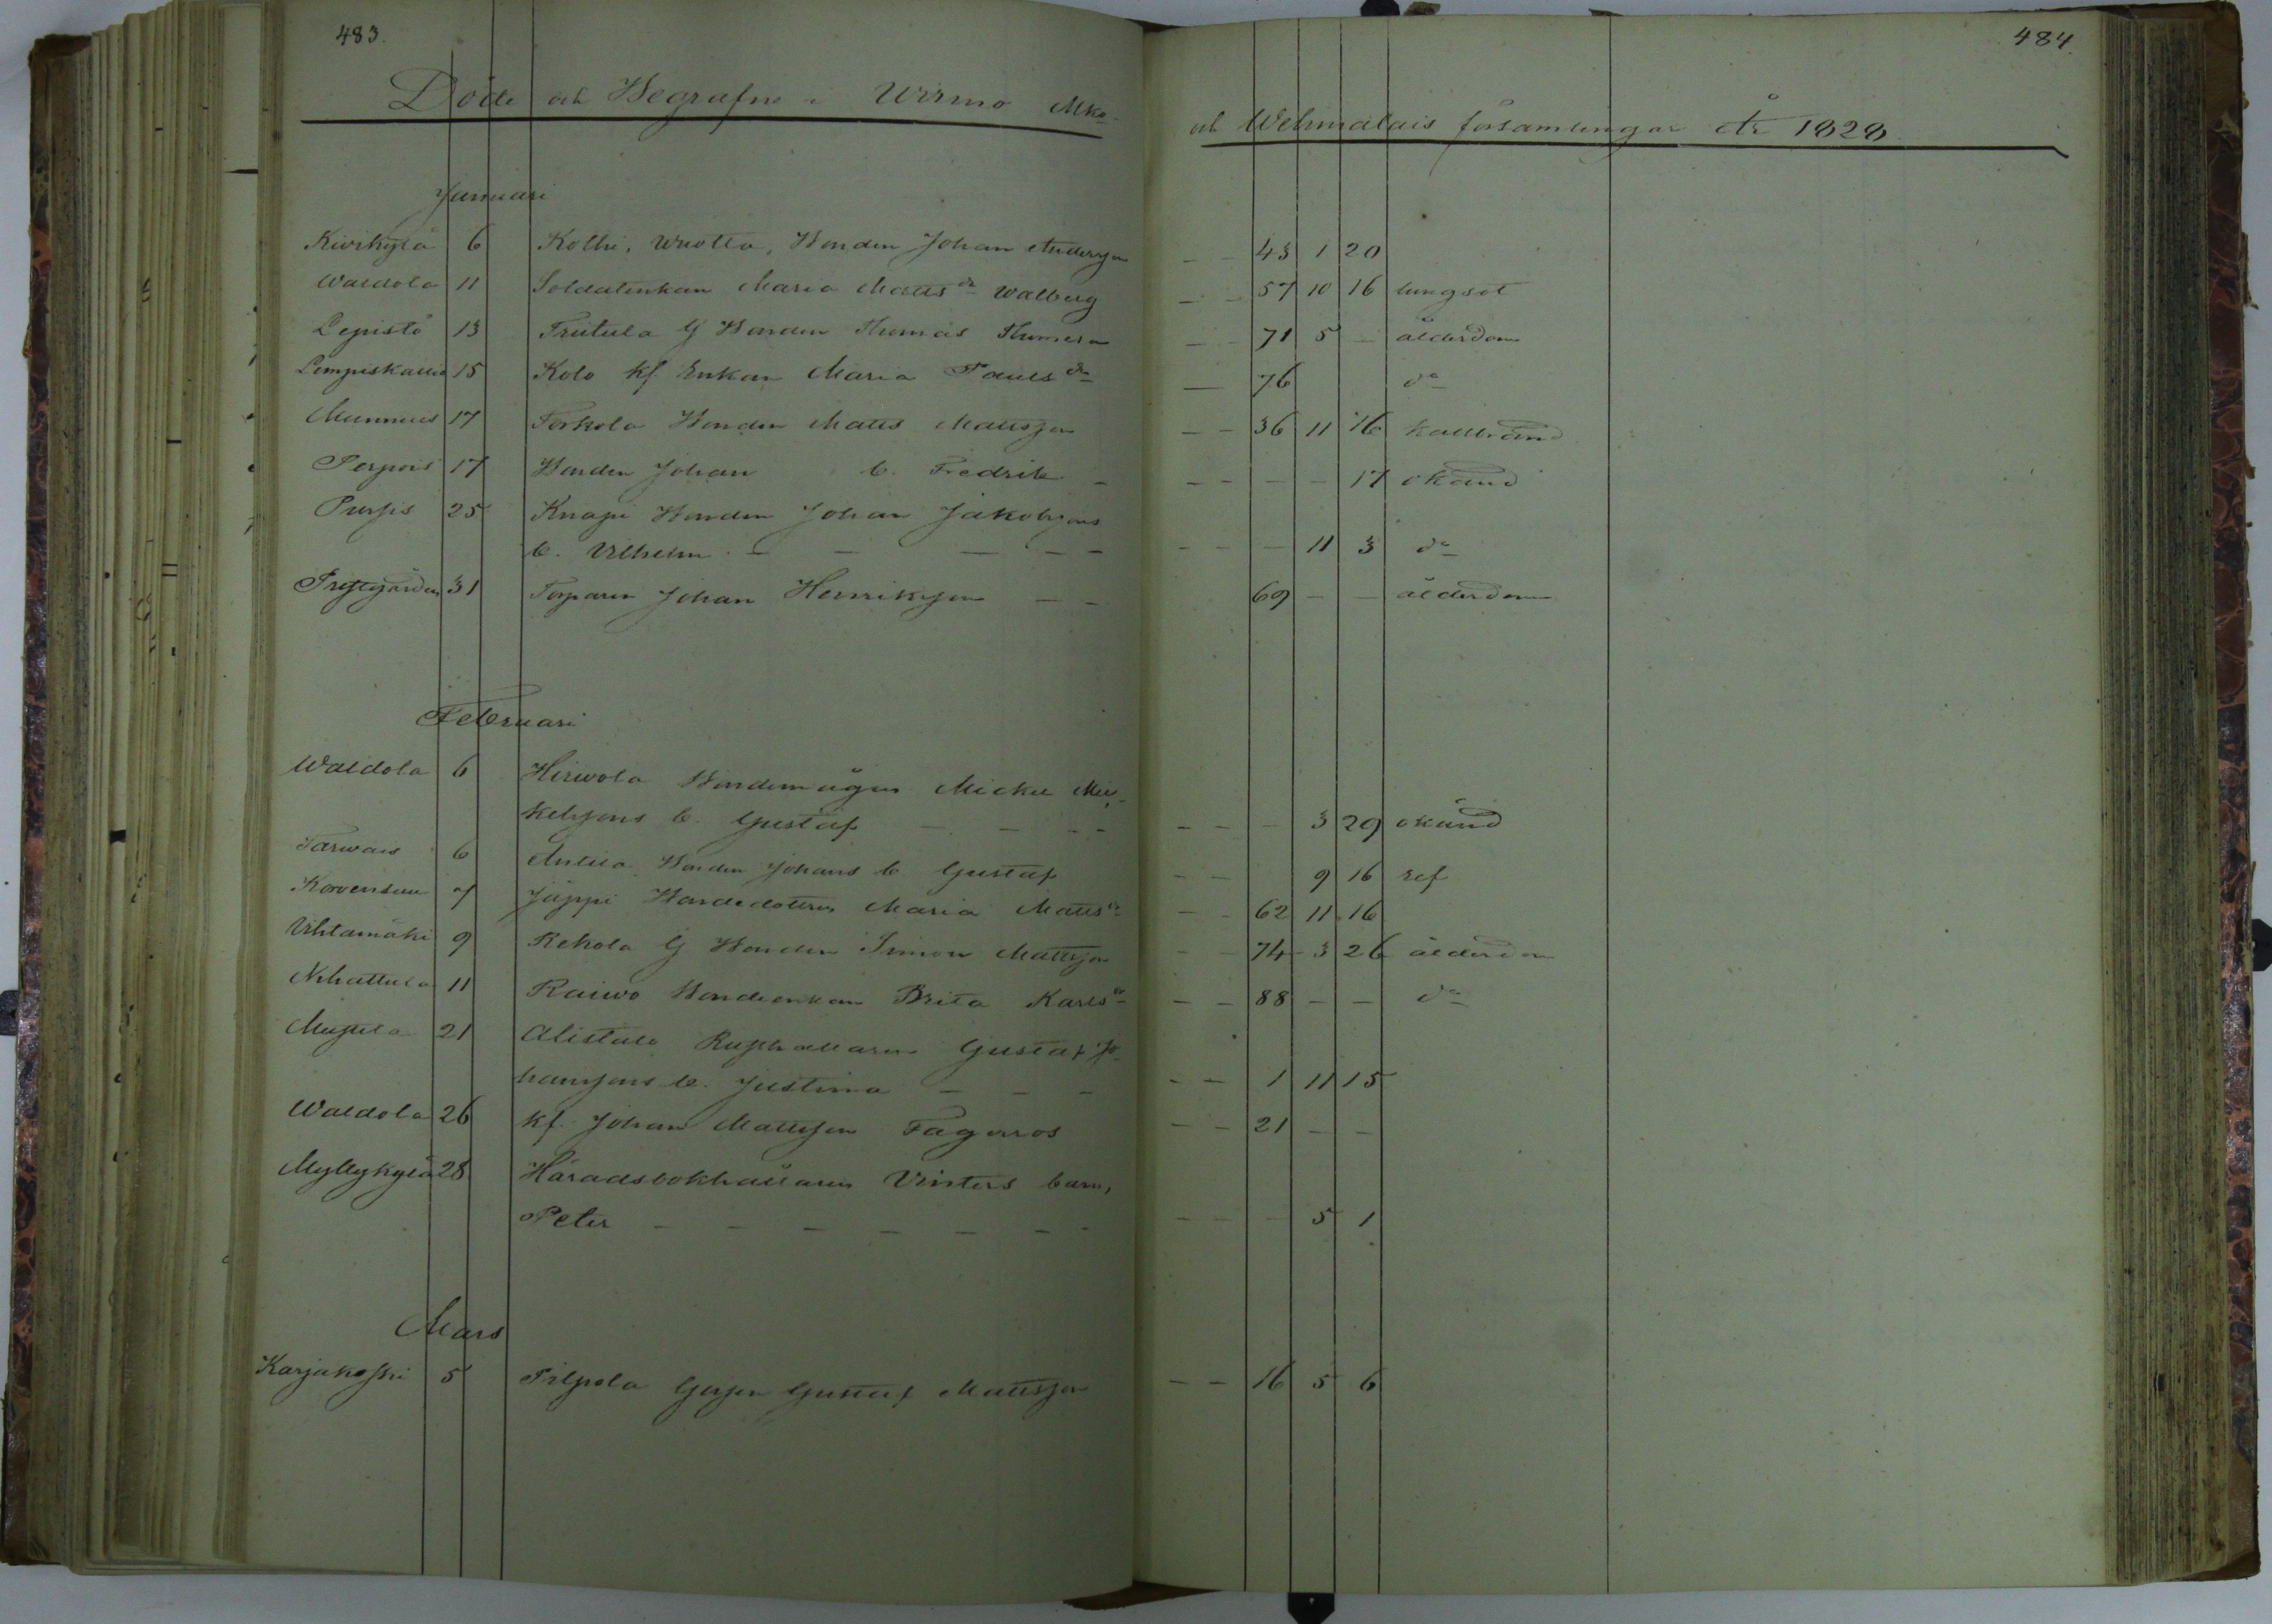 483.
484.
Döde och Begrafne i Wirmo Mko
och Wehmalais församlingar År 1828
Januari
Kivikylä 6 Kolhi, Wuotla, Bonden Johan Andersson – – 43 1 20
Waldola 11 Soldatenkan Maria Matts dr Walberg – – 57 10 16 lungsot
Lepistö 13 Trutula G Bonden Thomas – – 71 5 – ålderdom
15 Kolo kf Enkan Maria Pauls dr – 76 do
Munnus 17 Torkola Bonden Matts Mattsson – – 36 11 16 kallbrand
17 Bonden Johan b. Fredrik – – – – – 17 okänd
25 Knapi Bonden Johan Jakobssons
b. Vilhelm – – – – – – – – – 11 3 do
31 Torparen Johan Henriksson – – 69 – – ålderdom
Februari
Waldola 6 Hirwola Bondemågen Mickel Mic-
kelssons b. Gustaf – – – – – – – 3 29 okänd
Tarwais 6 Anttila Bonden Johans b Gustaf – – 9 16 ref
Korvensuu 7 Jäppi Bondedottren Maria Matts dr – – 62 11 16
Uhlamäki 9 Rekola G Bonden Simon Mattsson – – 74 3 26 ålderdom
Nihattula 11 Raiwo Bondeenkan Brita Karls dr – – 88 – – do
21 Alistalo Rusthållaren Gustaf Jo-
hanssons b. Justina – – – – – 1 11 15
Waldola 26 kf. Johan Mattsson Fagerros – – 21 – –
Myllykylä 28 Häradsbokhållaren Vinters barn,
Peter – – – – – – – – – – 5 1
Mars
Karjakoski 5 Pilpola Gossen Gustaf Mattsson – – 16 5 6